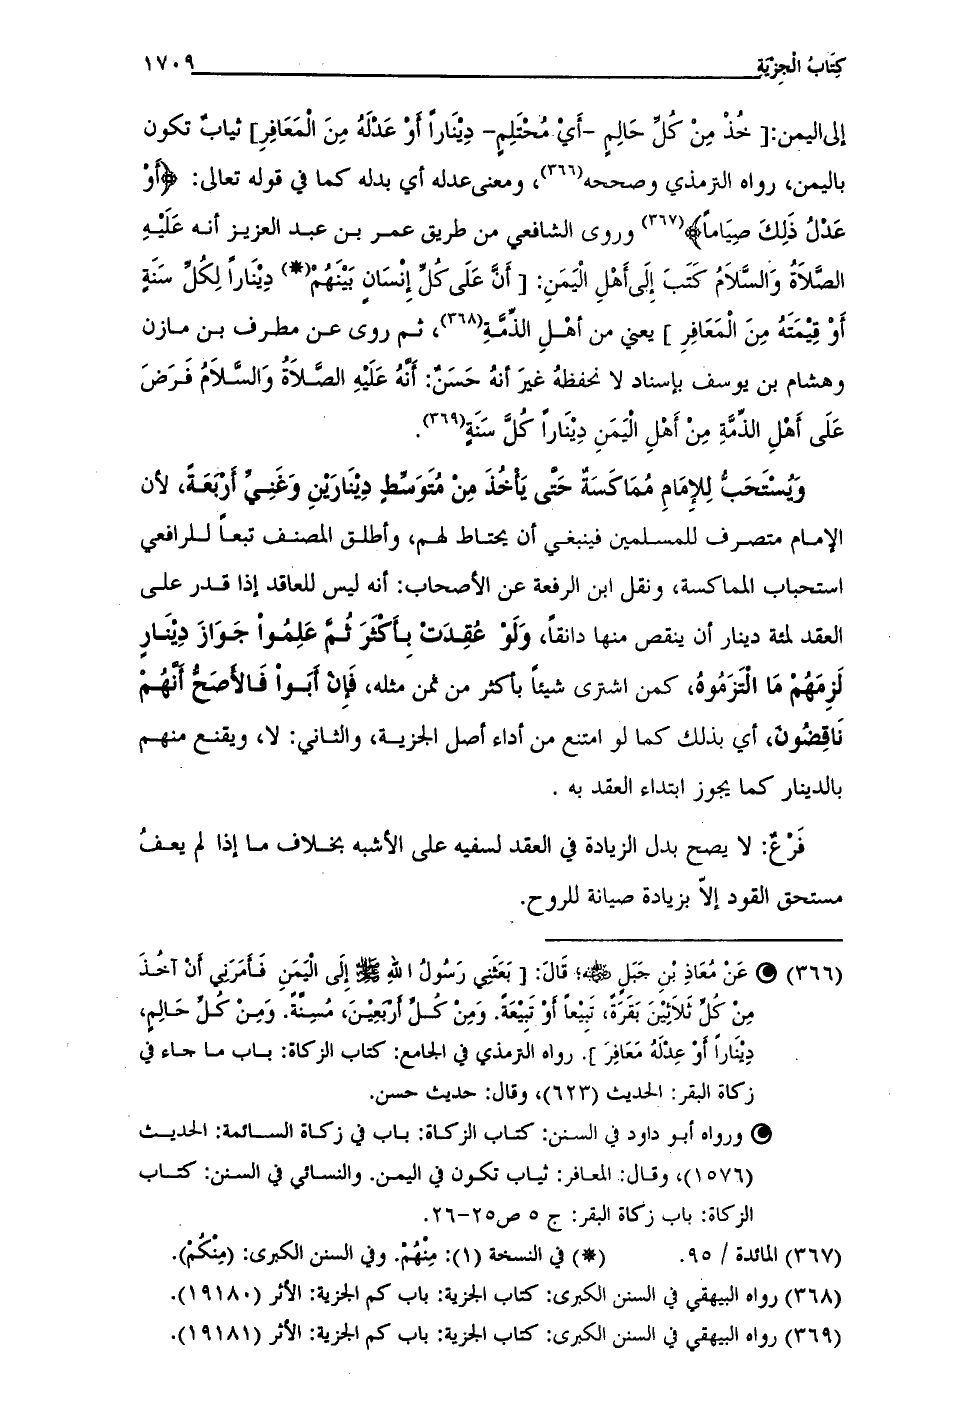 كِتَابُ الْجِزْيَةِ ١٧٠٩
إلى اليمن: [ خُذْ مِنْ كُلِّ حَالِمٍ -أَيْ مُحْتَلِمٍ- دِيْنَاراً أَوْ عَدْلَهُ مِنَ الْمَعَافِرِ] ثيابٌ تكون
باليمن، رواه الترمذي وصححه(٣٦٦)، ومعنى عدله أي بدله كما في قوله تعالى: ﴿أَوْ
عَدْلُ ذَلِكَ صِيَاماً﴾(٣٦٧) وروى الشافعي من طريق عمر بن عبد العزيز أنه عَلَيْهِ
الصَّلاَةُ وَالسَّلاَمُ كَتَبَ إِلَى أَهْلِ الْيَمَنِ: [ أَنَّ عَلَى كُلِّ إِنْسَانٍ بَيْنَهُمْ(*) دِيْنَاراً لِكُلِّ سَنَةٍ
أَوْ قِيْمَتَهُ مِنَ الْمَعَافِرِ ] يعني من أهْلِ الذِّمَّةِ(٣٦٨)، ثم روى عن مطرف بن مازن
وهشام بن يوسف بإسناد لا نحفظهُ غيرَ أنهُ حَسَنٌ: أَنَّهُ عَلَيْهِ الصَّلاَةُ وَالسَّلاَمُ فَرَضَ
عَلَى أَهْلِ الذِّمَّةِ مِنْ أَهْلِ الْيَمَنِ دِيْنَاراً كُلَّ سَنَةٍ(٣٦٩).
وَيُسْتَحَبُّ لِلإِمَامِ مُمَاكَسَةٌ حَتَّى يَأْخُذَ مِنْ مُتَوَسِّطٍ دِيْنَارَيْنِ وَغَنِيٍّ أَرْبَعَةً، لأن
الإمام متصرف للمسلمين فينبغي أن يحتاط لهم، وأطلق المصنف تبعاً للرافعي
استحباب المماكسة، ونقل ابن الرفعة عن الأصحاب: أنه ليس للعاقد إذا قدر على
العقد لمئة دينار أن ينقص منها دانقاً، وَلَوْ عُقِدَتْ بِأَكْثَرَ ثُمَّ عَلِمُواْ جَوَازَ دِيْنَارٍ
لَزِمَهُمْ مَا الْتَزَمُوهُ، كمن اشترى شيئاً بأكثر من ثمن مثله، فَإِنْ أَبَواْ فَالأَصَحُّ أَنَّهُمْ
نَاقِضُونَ، أي بذلك كما لو امتنع من أداء أصل الجزية، والثاني: لا، ويقنع منهم
بالدينار كما يجوز ابتداء العقد به .
فَرْعٌ: لا يصح بدل الزيادة في العقد لسفيه على الأشبه بخلاف ما إذا لم يعفُ
مستحق القود إلاّ بزيادة صيانة للروح.
(٣٦٦) عَنْ مُعَاذِ بْنِ جَبَلٍ ﷺ؛ قَالَ: [ بَعَثَنِي رَسُولُ اللهِ ﷺ إِلَى الْيَمَنِ فَأَمَرَنِي أَنْ آخُذَ
مِنْ كُلِّ ثَلاَثِيْنَ بَقَرَةً، تَبِيْعاً أَوْ تَبِيْعَةً. وَمِنْ كُلِّ أَرْبَعِيْنَ، مُسِنَّةً. وَمِنْ كُلِّ حَالِمٍ،
دِيْنَاراً أَوْ عِدْلَهُ مَعَافِرَ ]. رواه الترمذي في الجامع: كتاب الزكاة: باب ما جاء في
زكاة البقر: الحديث (٦٢٣)، وقال: حديث حسن.
ورواه أبو داود في السنن: كتاب الزكاة: باب في زكاة السائمة: الحديث
(١٥٧٦)، وقال: المعافر: ثياب تكون في اليمن. والنسائي في السنن: كتاب
الزكاة: باب زكاة البقر: ج ٥ ص٢٥-٢٦.
(٣٦٧) المائدة / ٩٥. (*) في النسخة (١): مِنْهُمْ. وفي السنن الكبرى: (مِنْكُمْ).
(٣٦٨) رواه البيهقي في السنن الكبرى: كتاب الجزية: باب كم الجزية: الأثر (١٩١٨٠).
(٣٦٩) رواه البيهقي في السنن الكبرى: كتاب الجزية: باب كم الجزية: الأثر (١٩١٨١).